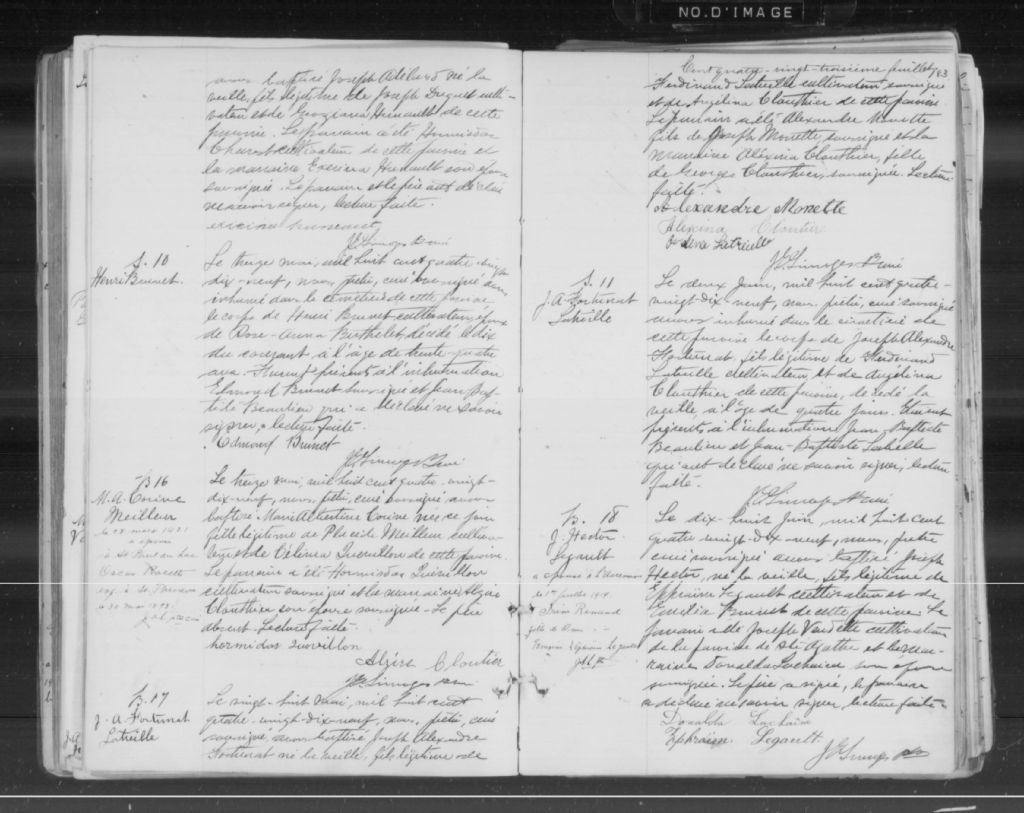 NO. D'IMAGE
avons baptisé Joseph Adélard né la
veille, fils légitime de Joseph Duquet culti-
vateur et de Georgiana Huneault de cette
paroisse. Le parrain a été Hormisdas
Charest cultivateur de cette paroisse et
la marraine Exerina Huneault son épouse
soussignée. Le parrain et le père ont déclaré
ne savoir signer, lecture faite.
S. 10
Henri Brunet
Le treize mai, mil huit cent quatre-vingt
dix-neuf, nous, prêtre, curé soussigné avons
inhumé dans le cimetière de cette paroisse
le corps de Henri Brunet cultivateur, époux
de Rose-Anna Berthelet, décédé le dix
du courant à l'âge de trente-quatre
ans. Furent présents à l'inhumation
Edmond Brunet soussigné et Jean Bap-
tiste Beaulieu qui a déclaré ne savoir
signer, lecture faite.
Edmond Brunet
J. Limoges Ptre curé
B 16
M. A. Corinne
Meilleur
Le treize mai, mil huit cent quatre-vingt-
dix-neuf, nous, prêtre, curé soussigné avons
baptisé Marie Albertine Corinne née ce jour
fille légitime de Placide Meilleur cultiva-
teur et de Célima Quévillon de cette paroisse.
Le parrain a été Hormisdas Quévillon
cultivateur soussigné et la marraine Algéra
Clouthier son épouse soussignée. Le père
absent. Lecture faite.
hormidas quevillon
Algéra Cloutier
J. Limoges
B. 17
J. A. Fortunat
Latreille
Le vingt-huit mai, mil huit cent
quatre-vingt-dix-neuf, nous, prêtre, curé
soussigné avons baptisé Joseph Alexandre
Fortunat né la veille, fils légitime de
Cent quatre-vingt-troisième feuillet/183
Ferdinand Latreille cultivateur soussigné
et de Angélina Clouthier de cette paroisse.
Le parrain a été Alexandre Monette
fils de Joseph Monette, soussigné et la
marraine Aléxina Clouthier, fille
de Georges Clouthier, soussignée. Lecture
faite.
Alexandre Monette
Alexina Cloutier
Latreille
J. Limoges
S. 11
J. A. Fortunat
Latreille
Le deux Juin, mil huit cent quatre-
vingt-dix-neuf, nous, prêtre, curé soussigné
avons inhumé dans le cimetière de
cette paroisse le corps de Joseph Alexandre
Fortunat, fils légitime de Ferdinand
Latreille cultivateur, et de Angélina
Clouthier de cette paroisse, décédé la
veille, à l'âge de quatre jours. Étaient
présents à l'inhumation Jean Baptiste
Beaulieu et Jean-Baptiste Labelle
qui ont déclaré ne savoir signer, lecture
faite.
J. Limoges
B. 18
J. Hector
Legault
Le dix-huit Juin, mil huit cent
quatre-vingt-dix-neuf, nous, prêtre
curé soussigné avons baptisé Joseph
Hector, né la veille, fils légitime de
Ephraim Legault cultivateur et de
Emélia Brunet de cette paroisse. Le
parrain a été Joseph Vendette cultivateur
de la paroisse de Ste Agathe et la mar-
raine Donalda Lachaine son épouse
soussignée. Le père a signé, le parrain
a déclaré ne savoir signer, lecture faite.
Donalda Lachaine
Ephraim Legault
J. Limoges